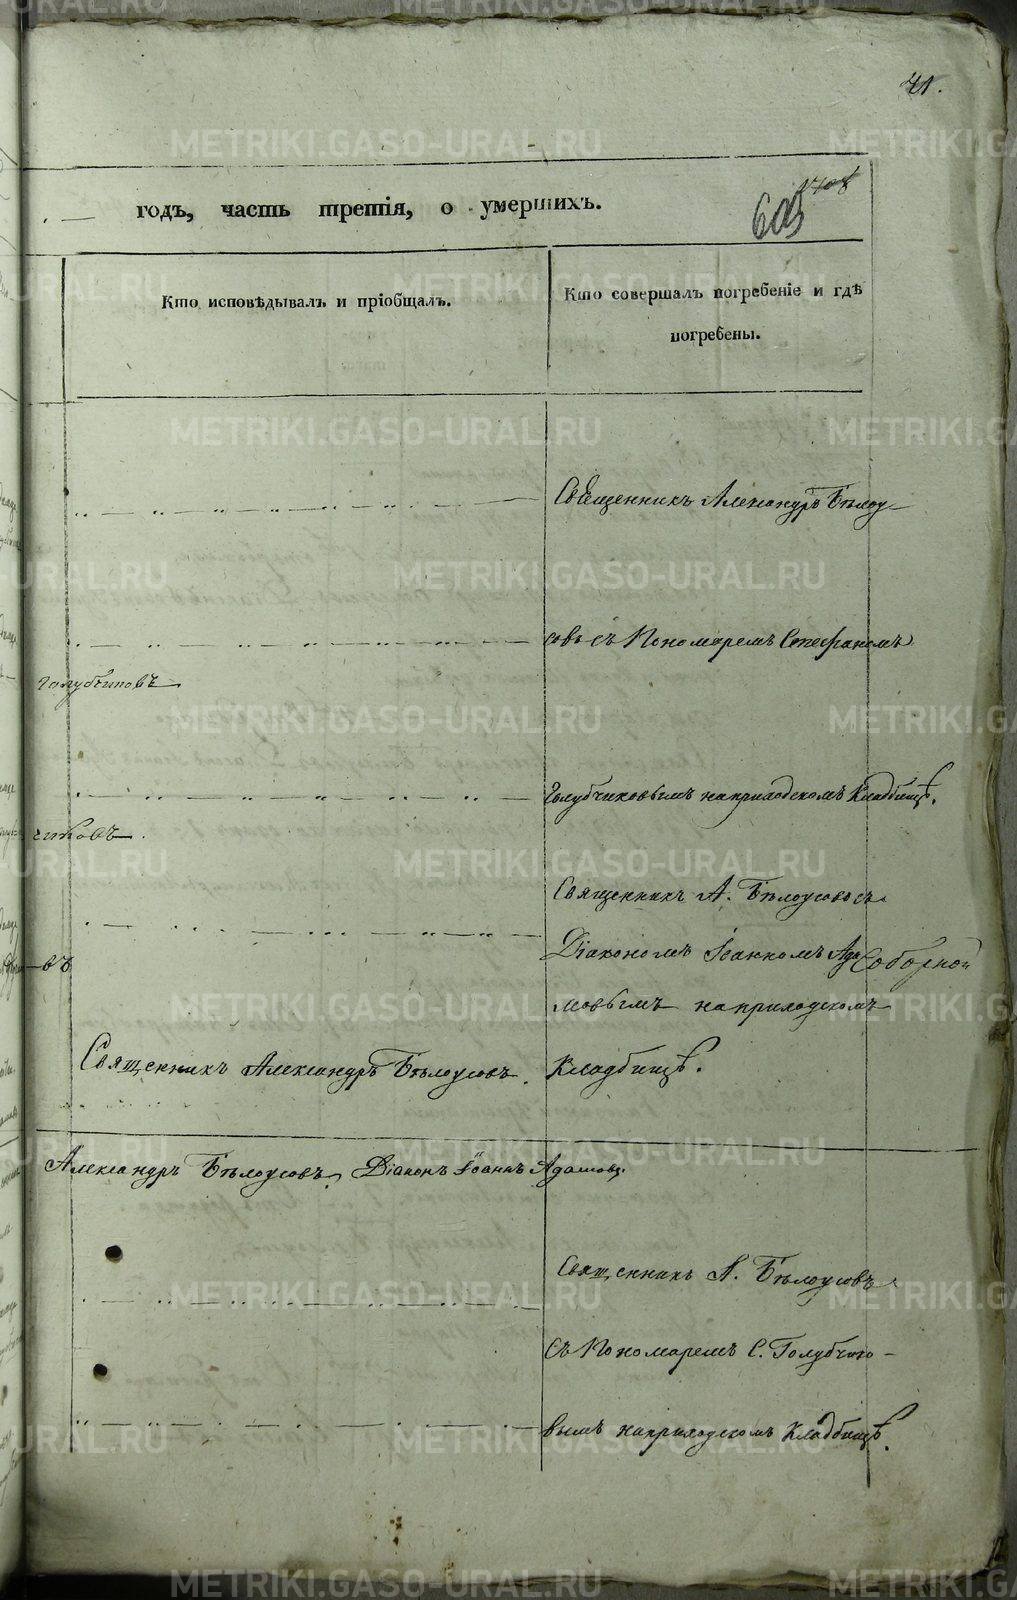 41.
1708
603
. — годъ, часть третія, о умершихъ.
Кто исповѣдывалъ и пріобщалъ.
Кто совершалъ погребеніе и гдѣ
погребены.
Священникъ Александръ Бѣлоу-
совъ съ Пономаремъ Стефаномъ
голубчиковъ
Голубчиковымъ на приходскомъ Кладбищѣ.
чиковъ
Священникъ А. Бѣлоусовъ съ
Діакономъ Іоанномъ Ада
Соборной
въ
мовымъ на приходскомъ
Священникъ Александръ Бѣлоусовъ.
Кладбищѣ.
Александръ Бѣлоусовъ, Діаконъ Іоаннъ Адамовъ.
Священникъ А. Бѣлоусовъ
съ Пономаремъ С. Голубчико-
вымъ на приходскомъ Кладбищѣ.
METRIKI.GASO-URAL.RU